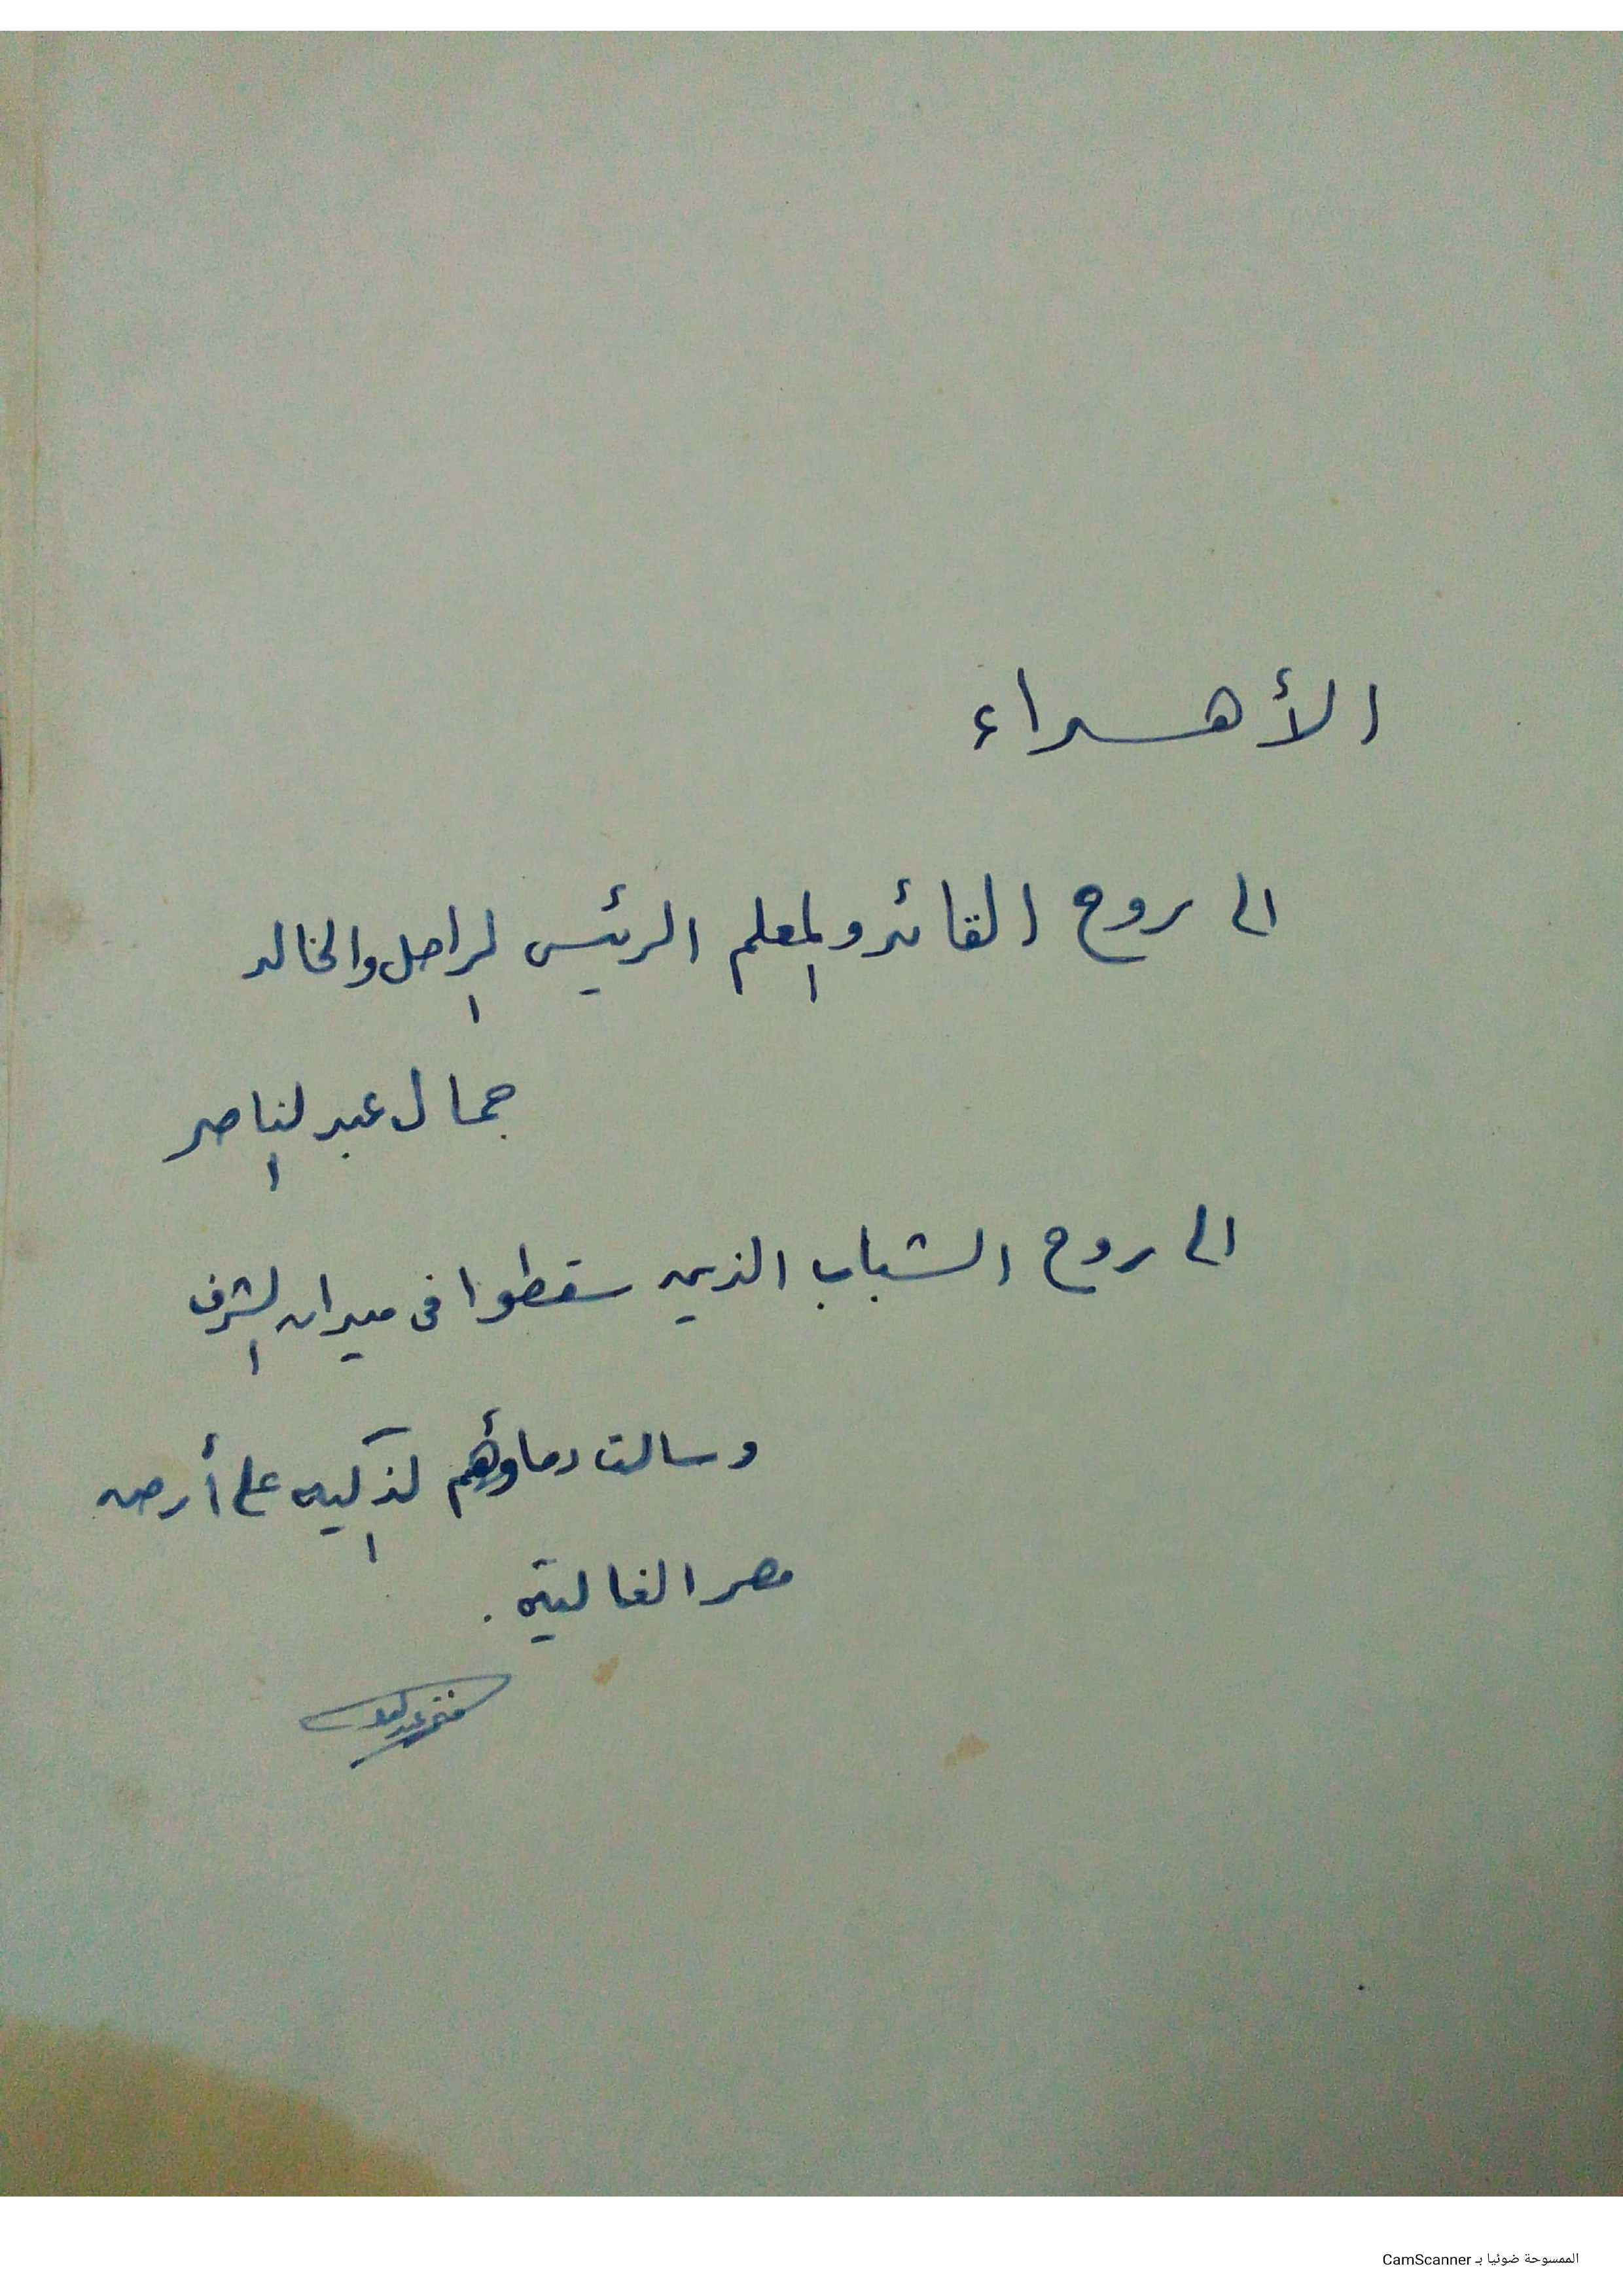 الأهداء
الى روح القائد والمعلم الرئيس الراحل والخالد
جمال عبد الناصر
الى روح الشباب الذين سقطوا فى ميدان الشرف
وسالت دماؤهم الذكيه على أرض
مصر الغالية .
الممسوحة ضوئيا بـ CamScanner